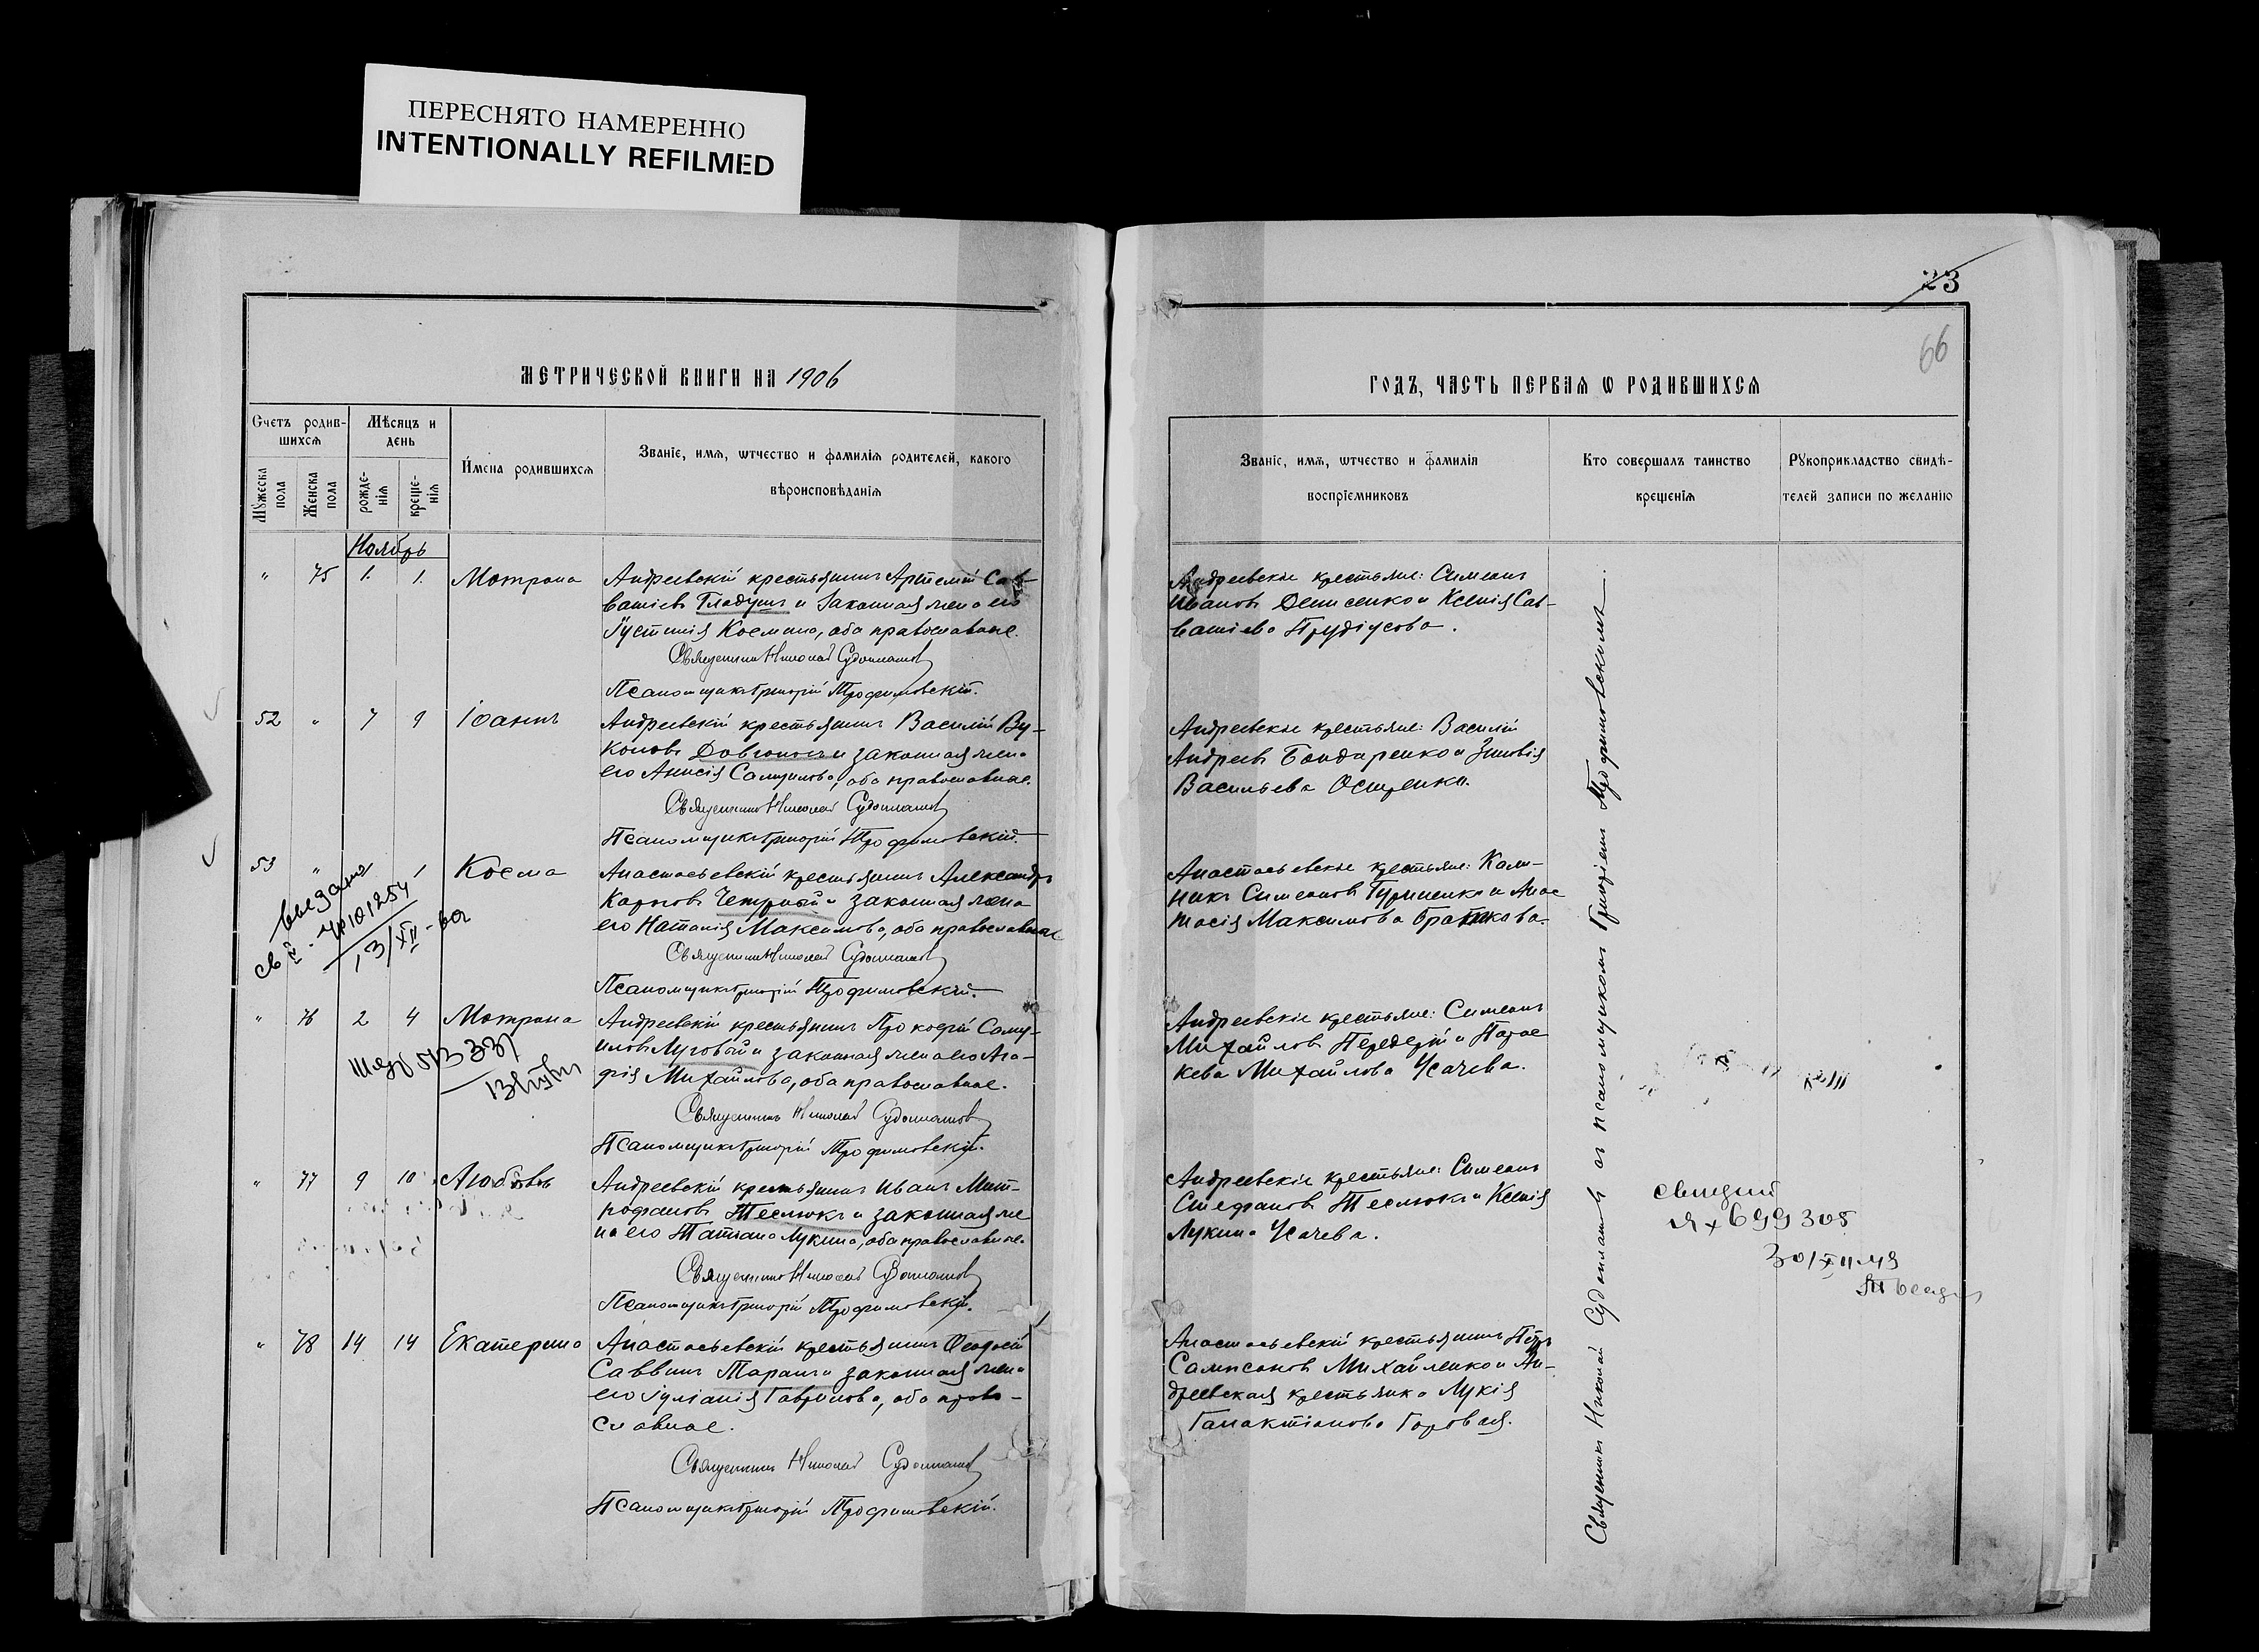 ПЕРЕСНЯТО НАМЕРЕННО
INTENTIONALLY REFILMED
23
66
МЕТРИЧЕСКОЙ КНИГИ НА 1906
ГОДЪ, ЧАСТЬ ПЕРВАЯ Ѡ РОДИВШИХСѦ
Счетъ родив-
шихсѧ
Мѣсяцъ и
день
Мужеска
пола
Женска
пола
рожде-
нія
креще-
нія
Имена родившихсѧ
Званіе, имѧ, ѡтчество и фамилія родителей, какого
вѣроисповѣданія
Званіе, имѧ, ѡтчество и фамилія
воспріемниковъ
Кто совершалъ таинство
крещенія
Рукоприкладство свидѣ-
телей записи по желанію
Ноябрь
" 75 1. 1. Мотрона
Андреевскій крестьянинъ Артемій Сав-
ватіевъ Гладушъ и законная жена его
Іустинія Космина, оба православные.
Священникъ Николай Судоплатовъ
Псаломщикъ Григорій Трофимовскій.
Андреевскіе крестьяне: Симеонъ
Ивановъ Денисенко и Ксенія Сав-
ватіева Прудіусова.
52 " 7 9 Іоаннъ
Андреевскій крестьянинъ Василій Ву-
коловъ Довгополъ и законная жена
его Анисія Самуилова, оба православные.
Священникъ Николай Судоплатовъ
Псаломщикъ Григорій Трофимовскій.
Андреевскіе крестьяне: Василій
Андреевъ Бондаренко и Зиновія
Васильева Осипенко.
53 " 1 Косма
Анастасьевскій крестьянинъ Александръ
Карповъ Чепурный и законная жена
его Наталія Максимова, оба православные
Священникъ Николай Судоплатовъ
Псаломщикъ Григорій Трофимовскій.
Анастасьевскіе крестьяне: Кали-
никъ Симеоновъ Гуриненко и Анас
тасія Максимова Братикова.
выдано
13/XII-
" 76 2 4 Мотрона
Андреевскій крестьянинъ Прокофій Саму-
иловъ Луговой и законная жена его Ага-
фія Михайлова, оба православные.
Священникъ Николай Судоплатовъ
Псаломщикъ Григорій Трофимовскій.
Андреевскіе крестьяне: Симеонъ
Михайловъ Передерій и Парас
кева Михайлова Усачева.
" 77 9 10 Любовь
Андреевскій крестьянинъ Иванъ Мит-
рофановъ Теслюкъ и законная же
на его Татіана Лукина, оба православные.
Священникъ Николай Судоплатовъ
Псаломщикъ Григорій Трофимовскій.
Андреевскіе крестьяне: Симеонъ
Стефановъ Теслюкъ и Ксенія
Лукина Усачева.
699305
" 78 14 14 Екатерина
Анастасьевскій крестьянинъ Феодосій
Саввинъ Таранъ и законная жена
его Іуліанія Гаврилова, оба право-
славные.
Священникъ Николай Судоплатовъ
Псаломщикъ Григорій Трофимовскій.
Анастасьевскій крестьянинъ Петръ
Сампсоновъ Михайленко и Ан-
дреевская крестьянка Лукія
Галактіонова Горовая.
Священникъ Николай Судоплатовъ съ псаломщикомъ Григоріемъ Трофимовскимъ.